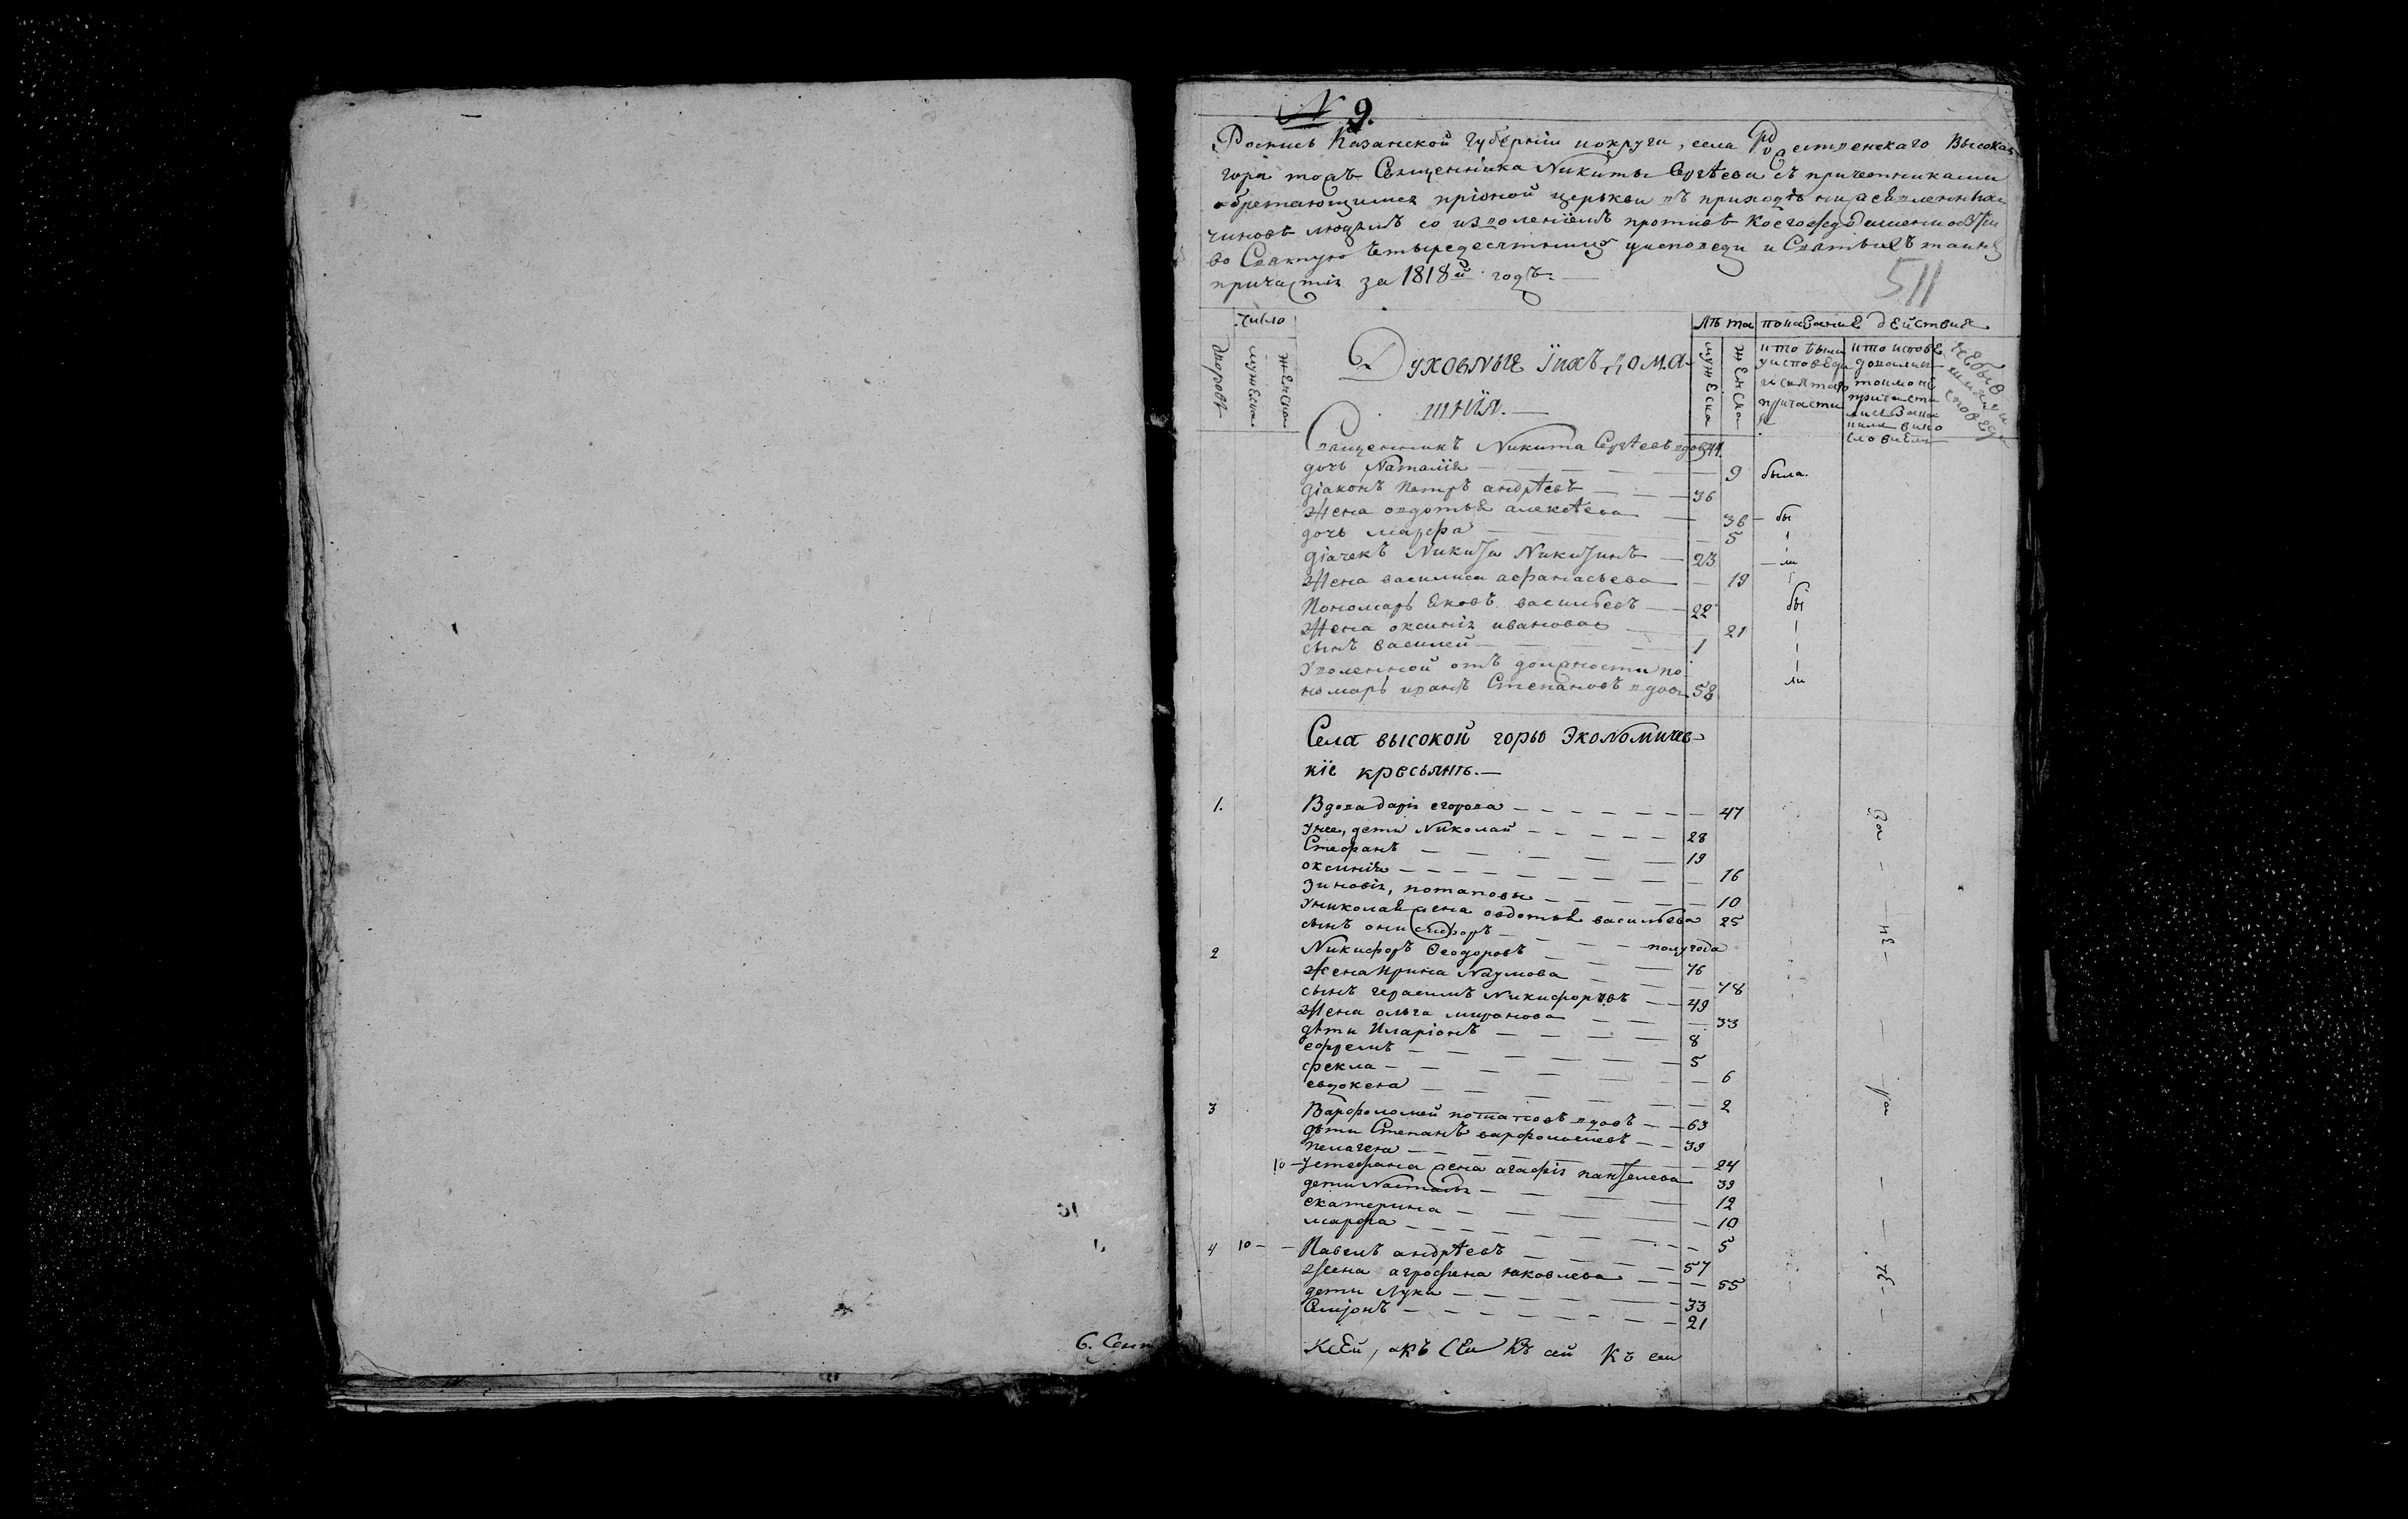 № 9.
Роспись Казанской губернии иокруги, села Рождественскаго Высокая
гора тожъ Священника Никиты Сергѣева съ причетниками
обретающимся прионой церькви въ приходѣ
чиновъ людямъ со изъ противъ коегождо имени
во Святую четыредесятницу уисповеди и Святыхъ таинъ
причастія за 1818й годъ.
511
Число
лѣта показаніе действия
дворовъ
мужеска
женска
Духовныя Iихъ дома-
шнія.
мужеска
женска
кто были уисповеди и святаго причастия
кто исповедовались токмо не причастились
Священникъ Никита Сергѣевъ вдовъ
дочь Наталія 9 была.
діаконъ Петръ андрѣевъ 36
жена овдотья алексѣева 36 бы
дочь марфа 5
діачекъ Никита Никитинъ 23 ли
жена василиса афанасьева 19
Пономарь Яковъ васильевъ 22 бы
жена оксинія иванова 21
сынъ василей 1
Уволенной отъ должности по
номарь иванъ Степановъ вдовъ 58 ли
Села высокой горы Экономичес-
кіе кресьянъ.
1. Вдова дарія егорова 47
Унее, дети Николай 28
Стефанъ 19
оксинія 16
Зиновія, потаповы 10
Униколая жена овдотья васильева 25
сынъ полугода
2 Никифоръ Ѳеодоровъ 76
жена Ирина Наумова 78
сынъ герасимъ Никифоровъ 49
жена ольга миронова 33
дѣти Иларіонъ 8
ефремъ 5
фекла 6
евдокея 2
3 Варфоломей потаповъ вдовъ 63
дѣти Степанъ варфоломеевъ 39
пелагея 24
10 Устефана жена агафія пантелева 39
дети Наталья 12
екатерина 10
марфа 5
4 10 Павелъ андрѣевъ 57
жена аграфена яковлева 55
дети Лука 33
Симіонъ 21
За
не
къ сей
6. Сент